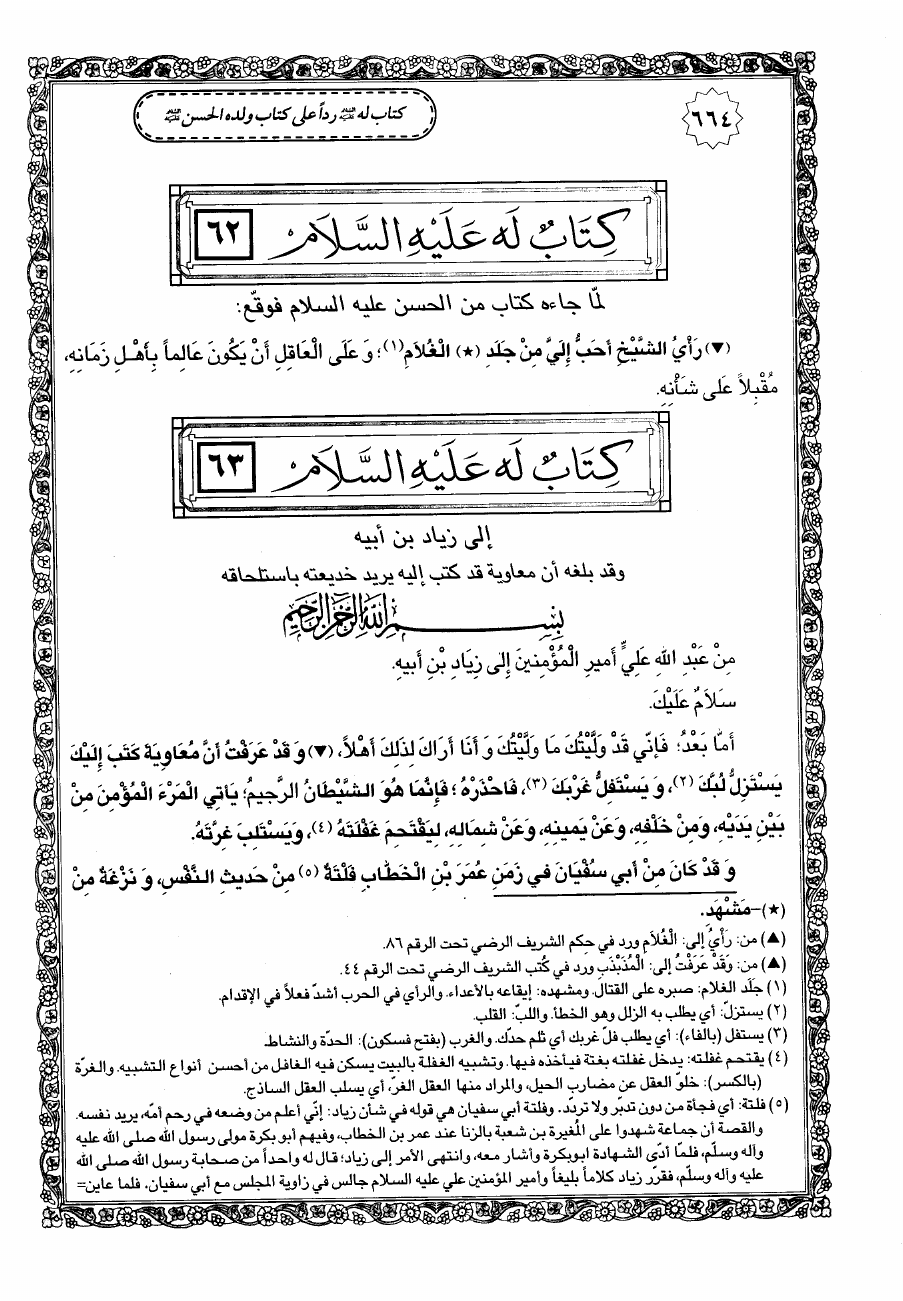 ٦٦٤
كتاب له عليه السلام رداً على كتاب ولده الحسن عليه السلام
كِتَابٌ لَه عَلَيْهِ السَّلَامُ ٦٢
لمّا جاءه كتاب من الحسن عليه السلام فوقّع:
(▼) رَأْيُ الشَّيْخِ أَحَبُّ إِلَيَّ مِنْ جَلَدِ (★) الْغُلَامِ(١)؛ وَ عَلَى الْعَاقِلِ أَنْ يَكُونَ عَالِماً بِأَهْلِ زَمَانِهِ،
مُقْبِلاً عَلى شَأْنِهِ.
كِتَابٌ لَه عَلَيْهِ السَّلَامُ ٦٣
إلى زياد بن أبيه
وقد بلغه أن معاوية قد كتب إليه يريد خديعته باستلحاقه
بِسْمِ اللهِ الرَّحْمٰنِ الرَّحِيمِ
مِنْ عَبْدِ اللهِ عَلِيٍّ أَميرِ الْمُؤْمِنينَ إِلى زِيَادِ بْنِ أَبيهِ.
سَلَامٌ عَلَيْكَ.
أَمَّا بَعْدُ؛ فَإِنّي قَدْ وَلَّيْتُكَ مَا وَلَّيْتُكَ وَ أَنَا أَرَاكَ لِذلِكَ أَهْلاً، (▼) وَ قَدْ عَرَفْتُ أَنَّ مُعَاوِيَةَ كَتَبَ إِلَيْكَ
يَسْتَزِلُّ لُبَّكَ (٢)، وَ يَسْتَفِلُّ غَرْبَكَ (٣)، فَاحْذَرْهُ؛ فَإِنَّمَا هُوَ الشَّيْطَانُ الرَّجيمُ؛ يَأْتِي الْمَرْءَ الْمُؤْمِنَ مِنْ
بَيْنِ يَدَيْهِ، وَمِنْ خَلْفِهِ، وَعَنْ يَمينِهِ، وَعَنْ شِمَالِهِ، لِيَقْتَحِمَ غَفْلَتَهُ (٤)، وَيَسْتَلِبَ غِرَّتَهُ.
وَ قَدْ كَانَ مِنْ أَبي سُفْيَانَ في زَمَنِ عُمَرَ بْنِ الْخَطَّابِ فَلْتَةٌ (٥) مِنْ حَديثِ النَّفْسِ، وَ نَزْغَةٌ مِنْ
(★)–مَشْهَدِ.
(▲) من: رَأْيُ إلى: الْغُلَامِ ورد في حِكم الشريف الرضي تحت الرقم ٨٦.
(▲) من: وَقَدْ عَرَفْتُ إلى: الْمُذَبْذَبِ ورد في كُتب الشريف الرضي تحت الرقم ٤٤.
(١) جلَد الغلام: صبره على القتال. ومشهده: إيقاعه بالأعداء. والرأي في الحرب أشدّ فعلاً في الإقدام.
(٢) يستزلّ: أي يطلب به الزلل وهو الخطأ. واللبّ: القلب.
(٣) يستفل (بالفاء): أي يطلب فلّ غربك أي ثلم حدّك. والغرب (بفتح فسكون): الحدّة والنشاط.
(٤) يقتحم غفلته: يدخل غفلته بغتة فيأخذه فيها. وتشبيه الغفلة بالبيت يسكن فيه الغافل من أحسن أنواع التشبيه. والغرة
(بالكسر): خلوّ العقل عن مضارب الحيل، والمراد منها العقل الغرّ، أي يسلب العقل الساذج.
(٥) فلتة: أي فجأة من دون تدبّر ولا تردّد. وفلتة أبي سفيان هي قوله في شأن زياد: إنّي أعلم من وضعه في رحم أمّه، يريد نفسه.
والقصة أن جماعة شهدوا على المُغيرة بن شعبة بالزنا عند عمر بن الخطاب، وفيهم أبو بكرة مولى رسول الله صلى الله عليه
وآله وسلّم، فلمّا أدّى الشهادة ابوبكرة وأشار معه، وانتهى الأمر إلى زياد؛ قال له واحداً من صحابة رسول الله صلى الله
عليه وآله وسلّم، فقرّر زياد كلاماً بليغاً وأمير المؤمنين علي عليه السلام جالس في زاوية المجلس مع أبي سفيان، فلما عاين=